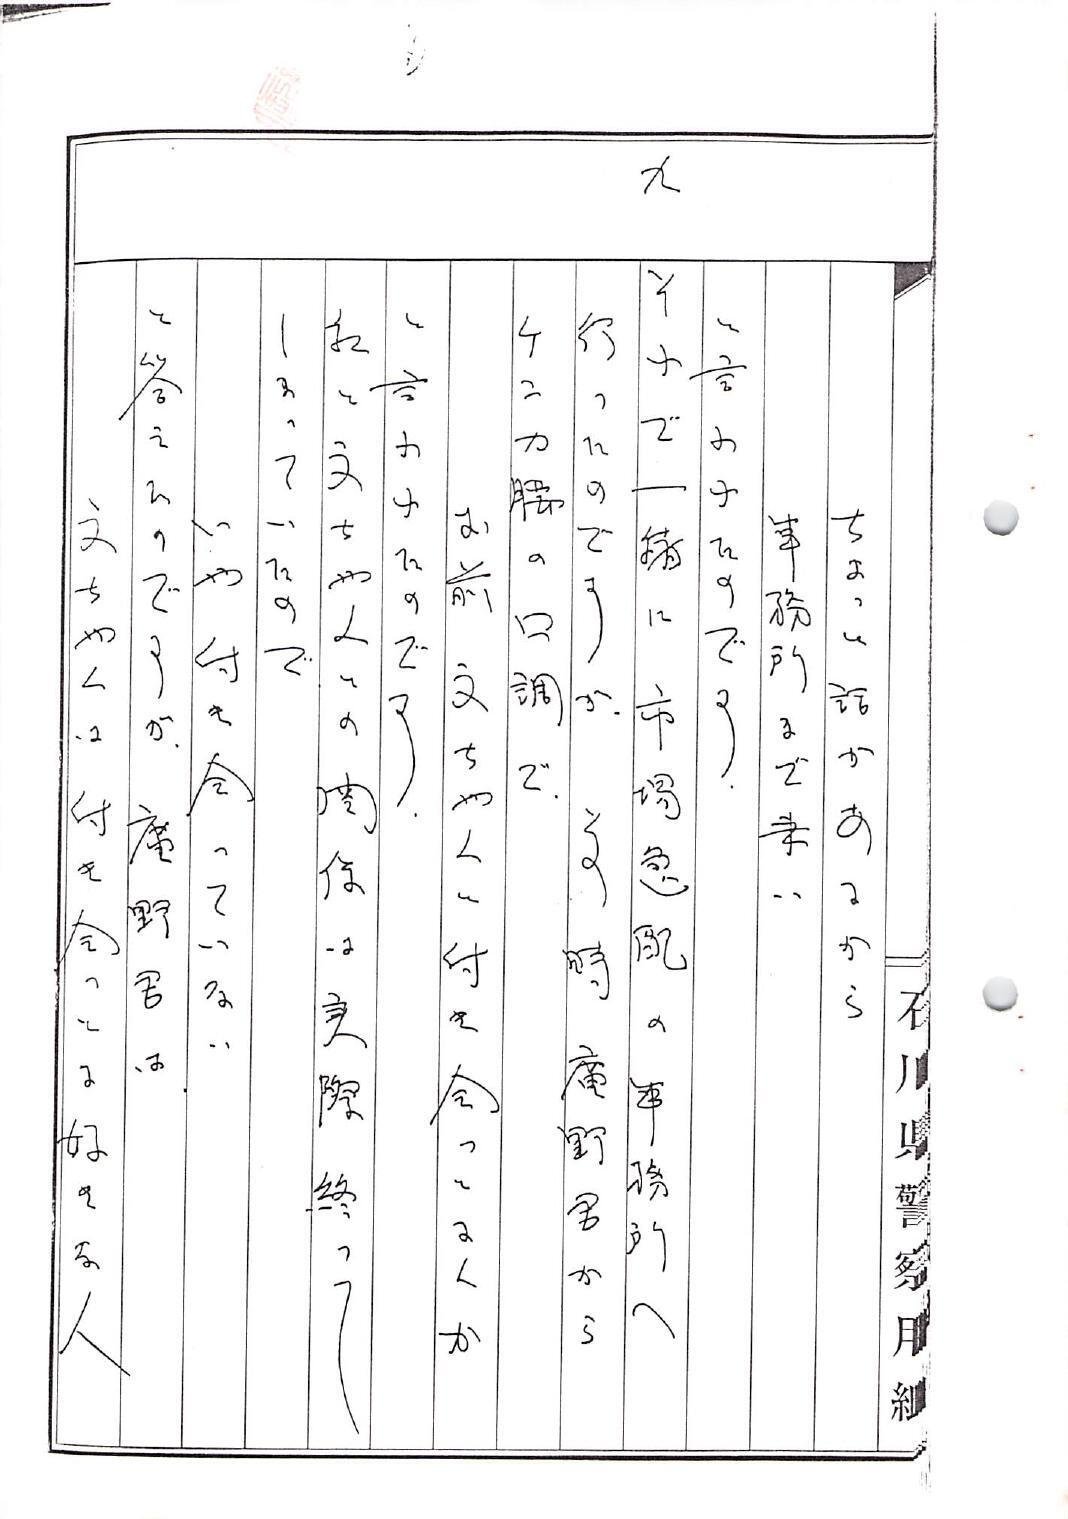 九
ちょっと話があるから
事務所まで来い
と言われたのです。
それで一緒に市場急配の事務所へ
行ったのですが、その時廣野君から
ケンカ腰の口調で、
お前文ちゃんと付き合っとるんか
と言われたのです。
私と文ちゃんとの関係は実際終って
しまっていたので
いや付き合っていない
と答えたのですが、廣野君は
文ちゃんは付き合っとる好きな人
石川県警察用紙